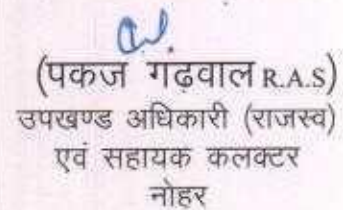 (पकज गढ़वाल R.A.S)
उपखण्ड अधिकारी (राजस्व)
एवं सहायक कलक्टर
नोहर